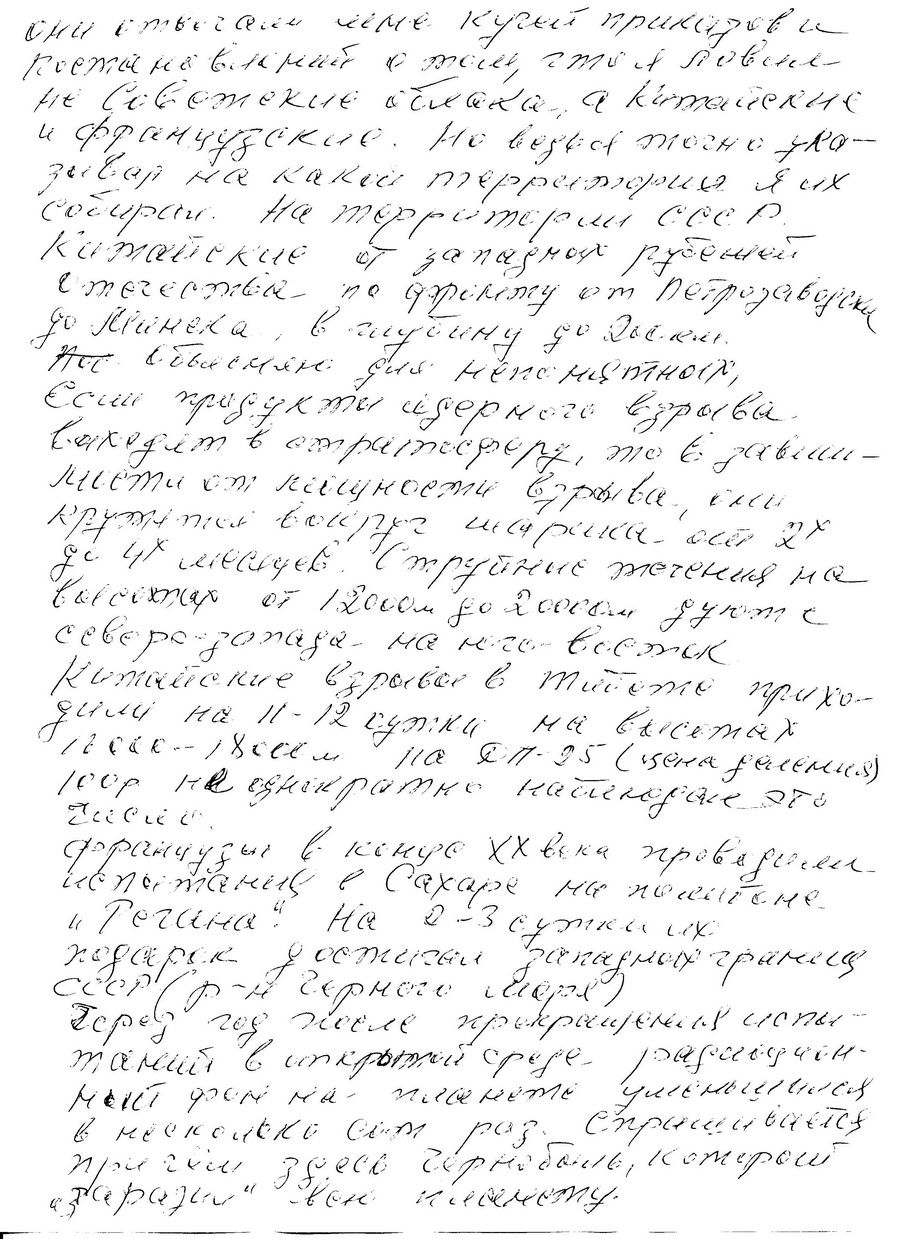 они отвечали мне кучей приказов и
постановлений о том, что я ловил
не Советские облака, а Китайские
и французские. Но ведь я точно ука-
зывал на какой территории я их
собирал. На территории СССР.
Китайские от западных рубежей
Отечества по фронту от Петрозаводска
до Минска, в глубину до 200 км.
Объясняю для непонятных,
Если продукты ядерного взрыва
выходят в стратосферу, то в зависи-
мости от мощности взрыва, они
кружатся вокруг шарика от 2х
до 4х месяцев. Струйные течения на
высотах от 12000м до 20000м дуют с
северо-запада на юго-восток
Китайские взрывы в Тибете прихо-
дили на 11-12 сутки на высотах
-18000м на ДП-25 (цена деления)
100р неоднократно наблюдали это
число.
Французы в конце ХХ века проводили
испытания в Сахаре на полигоне
"Регана". На 2-3 сутки их
подарок достигал западных границ
СССР (р-н Черного моря)
Через год после прекращения испы-
таний в открытой среде радиацион-
ный фон на планете уменьшился
в несколько сот раз. Спрашивается
при чём здесь Чернобыль, который
"заразил" всю планету.